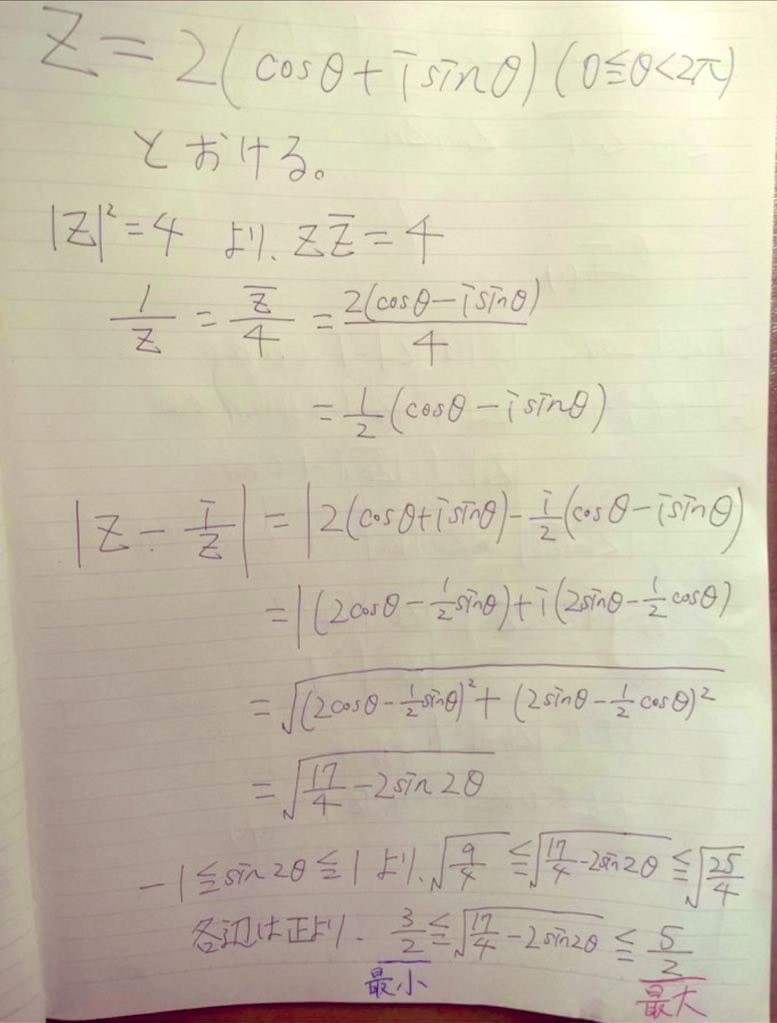 Z = 2(cosθ + i sinθ) (0≦θ<2π)
とおける。
|Z|² = 4 より、 Z\overline{Z} = 4
\frac{1}{Z} = \frac{\overline{Z}}{4} = \frac{2(cosθ - i sinθ)}{4}
= \frac{1}{2}(cosθ - i sinθ)
|Z - \frac{i}{Z}| = |2(cosθ + i sinθ) - \frac{i}{2}(cosθ - i sinθ)
= |(2cosθ - \frac{1}{2}sinθ) + i(2sinθ - \frac{1}{2}cosθ)
= \sqrt{(2cosθ - \frac{1}{2}sinθ)² + (2sinθ - \frac{1}{2}cosθ)²}
= \sqrt{\frac{17}{4} - 2sin2θ}
-1 ≦ sin2θ ≦ 1 より、 \sqrt{\frac{9}{4}} ≦ \sqrt{\frac{17}{4} - 2sin2θ} ≦ \sqrt{\frac{25}{4}}
各辺は正より、 \frac{3}{2} ≦ \sqrt{\frac{17}{4} - 2sin2θ} ≦ \frac{5}{2}
最小 最大